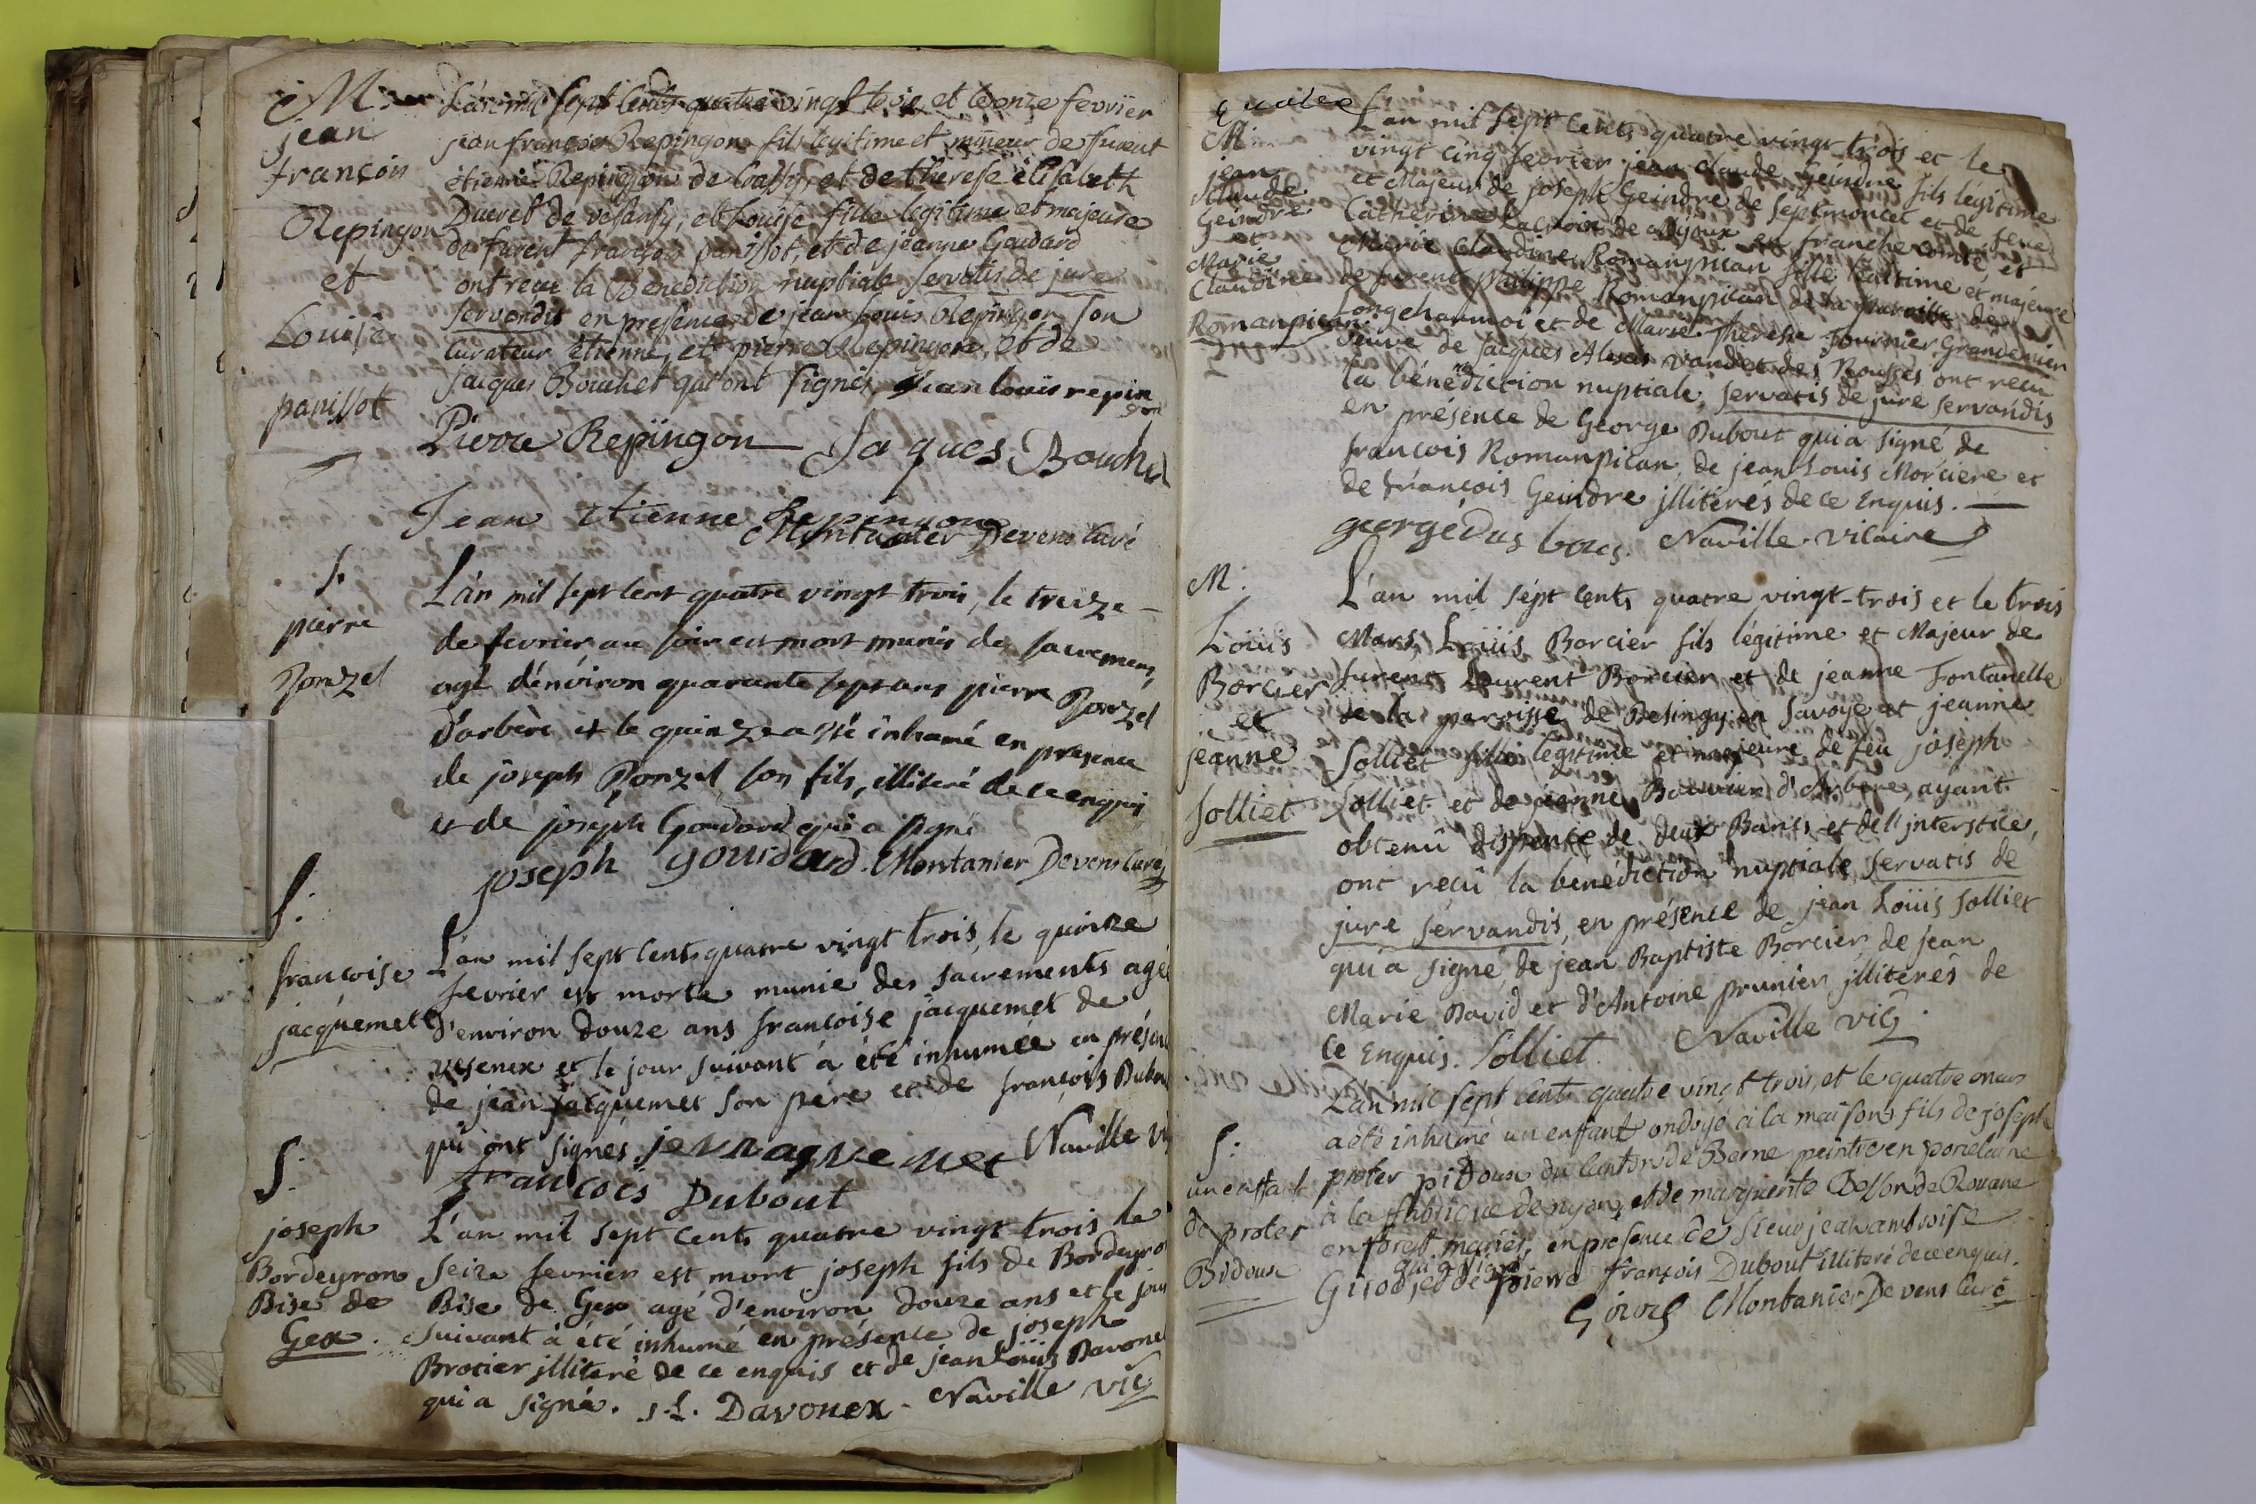 M.
jean
françois
Repingon
et
Louise
panissot
L'an mil sept cents quatre vingt trois et le onze fevrier
jean françois Repingon fils legitime et mineur de furent
étienne Repingon de Cassy, et de therese élisabeth
Ducret de vesansy, et Louise fille legitime et majeure
de furent françois panissot, et de jeanne Goudard
ont recu la Benediction nuptiale servatis de jure
servandis en presence de jean Louis Repingon son
curateur étienne, et pierre Repingon, et de
jacques Bouchet qui ont signés jean louis repin
gon
Pierre Repingon Jaques Bouchet
Jean Etienne Repingon
Montanier Devens Curé
S.
pierre
Ponzel
L'an mil sept cent quatre vingt trois, le treize
de fevrier au soir est mort munis de sacremens,
agé d'énviron quarante sept ans pierre Ponzel
d'arbère et le quinze a été inhumé en presence
de joseph Ponzel son fils, illiteré de ce enquis
et de joseph Goudard qui a signé
joseph gourdard. Montanier Devens Curé
S:
francoise
jacquemet
L'an mil sept cents quatre vingt trois, le quinze
fevrier est morte munie des sacrements agée
d'environ douze ans francoise jacquemet de
vesenex et le jour suivant a été inhumée en présen
de jean jacquemet son pére et de françois Dubou
qui ont signés jean aquemet Naville vi
francois Dubout
S:
joseph
Bordeyron
Bise de
Gex.
L'an mil sept cents quatre vingt-trois le
seize fevrier est mort joseph fils de Bordeyron
Bise de Gex agé d'environ douze ans et le jour
suivant à été inhumé en présence de joseph
Brotier jlliteré de ce enquis et de jean Loüis Davone
qui a signé. j.L. Davonex. Naville vic
M:
jean
Claude
Geindre
et
Marie
Claudine
Romanpican
L'an mil sept cents quatre vingt trois et le
vingt cinq fevrier jean claude Geindre fils légitime
et Majeur de joseph Geindre de septmoncel et de feue
Catherine Lacroix de Mijoux en franche comté et
Marie Claudine Romanpican fille légitime et majeure
de furent philippe Romanpican de la paroisse de
Longchaumoi et de Marie Therese Fournier Grandemier
veuve de Jacques Alexis Vandet des Rousses ont recu
la bénédiction nuptiale, servatis de jure servandis
en présence de George Dubout qui a signé de
françois Romanpican, de jean Louis Morciere et
de françois Geindre jllitérés de ce Enquis.
george Dus bous. Naville. vicaire
M:
Loüis
Borcier
et
jeanne
Solliet
L'an mil sépt cents quatre vingt-trois et le trois
Mars, Loüis Borcier fils légitime et Majeur de
furent Laurent Borcier et de jeanne Fontanelle
de la paroisse de Besingy en savoye et jeanne
Solliet fille légitime et majeure de feu joseph
Solliet et de jeanne Bouvier d'Arbere, ayant
obtenû dispense de deux Bancs et de l'jnterstice,
ont recû la bénédiction nuptiale servatis dé
jure sérvandis, en présence de jean Loüis Solliet
qui a signé, de jean Baptiste Borcier, de jean
Marie David et d'Antoine prunier jllitérés de
ce Enquis. Solliet. Naville vic.
S:
un enffant
de proter
Bidoux
L'an mil sept cents quatre vingt trois, et le quatre mars
a été inhumé un enffant ondoyé à la maison fils de joseph
proter pidoux du Canton de Berne peintre en porcelaine
à la fabrique de nyon, et de marguerite Besson de Rouane
en forest mariés, en presence de sieur jean ambroise
qui a signé
Girod, et de pierre françois Dubout illiteré de ce enquis.
Girod Montanier Devens Curé